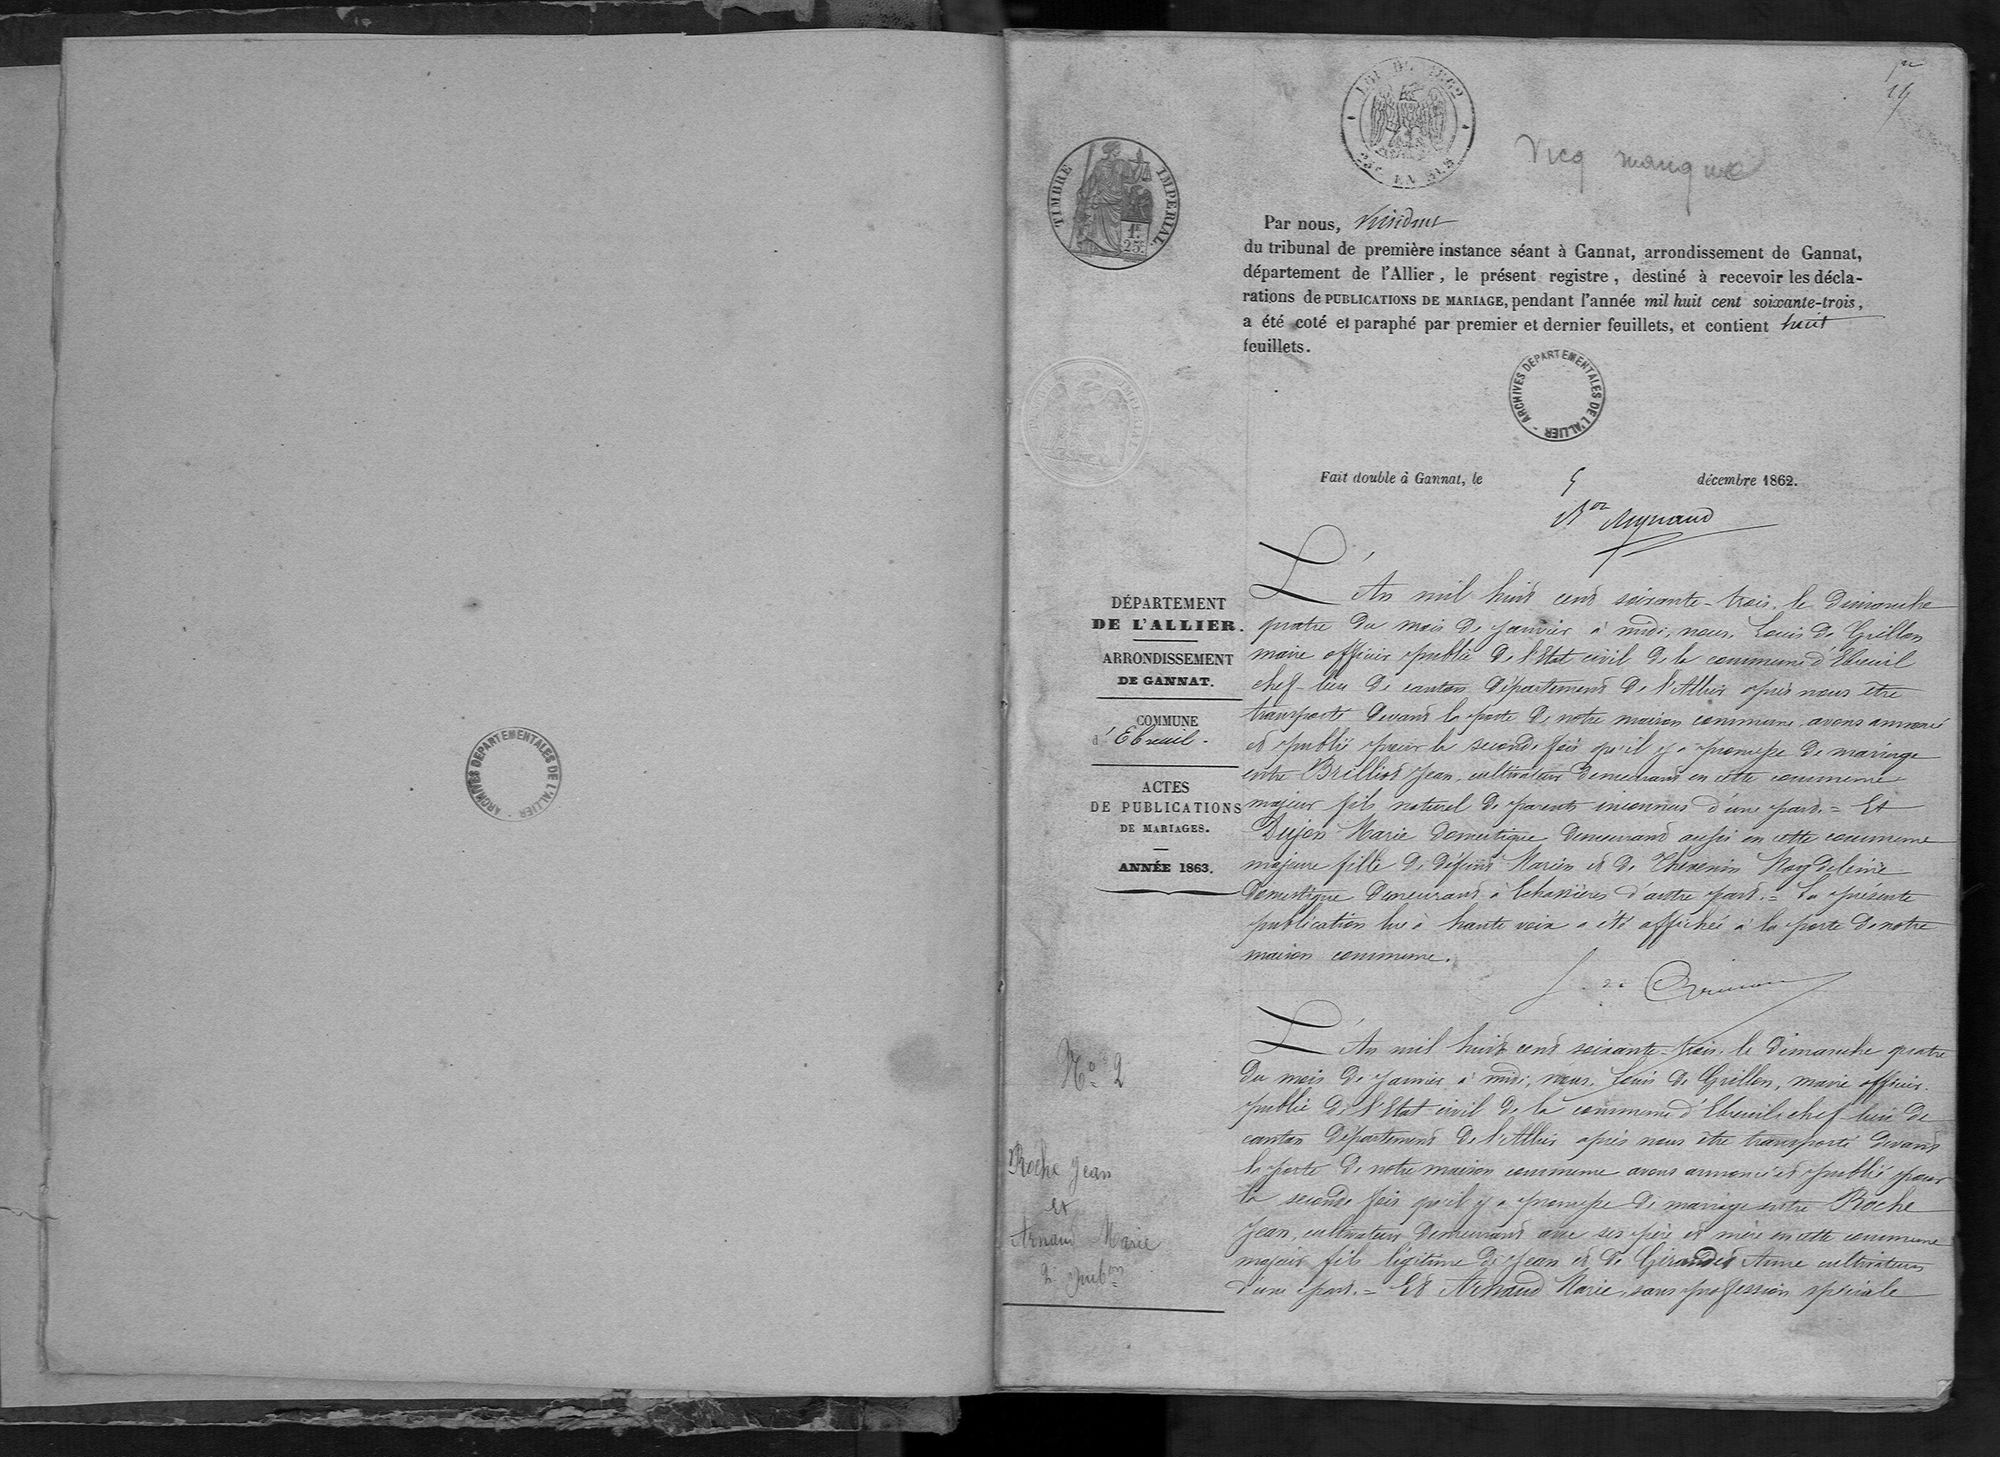 ARCHIVES DEPARTEMENTALES DE L'ALLIER
LOI DE 1862
25c EN SUS
TIMBRE IMPERIAL
1F
25C
Vicq manque
Par nous, Président
du tribunal de première instance séant à Gannat, arrondissement de Gannat,
département de l'Allier, le présent registre, destiné à recevoir les décla-
rations de PUBLICATIONS DE MARIAGE, pendant l'année mil huit cent soixante-trois,
a été coté et paraphé par premier et dernier feuillets, et contient huit
feuillets.
ARCHIVES DEPARTEMENTALES DE L'ALLIER
Fait double à Gannat, le 5 décembre 1862.
DÉPARTEMENT
DE L'ALLIER.
ARRONDISSEMENT
DE GANNAT.
COMMUNE
d'Ebreuil.
ACTES
DE PUBLICATIONS
DE MARIAGES.
ANNÉE 1863.
L'An mil huit cent soixante-trois, le dimanche
quatre du mois de janvier à midi, nous, Louis de Grillon
maire officier public de l'Etat civil de la commune d'Ebreuil
chef-lieu de canton département de l'Allier après nous être
transporté devant la porte de notre maison commune avons annoncé
et publié pour la seconde fois qu'il y a promesse de mariage
entre Brilliot Jean, cultivateur demeurant en cette commune
majeur fils naturel de parents inconnus d'une part. = Et
Dujon Marie domestique demeurant aussi en cette commune
majeure fille de défunt Marien et de Thevenin Magdeleine
domestique demeurant à Echassières d'autre part. = La présente
publication lue à haute voix a été affichée à la porte de notre
maison commune.
No 2
Roche Jean
et
Arnaud Marie
2e pub.on
L'An mil huit cent soixante-trois, le dimanche quatre
du mois de janvier à midi, nous, Louis de Grillon, maire officier
public de l'Etat civil de la commune d'Ebreuil chef-lieu de
canton département de l'Allier après nous être transporté devant
la porte de notre maison commune avons annoncé et publié pour
la seconde fois qu'il y a promesse de mariage entre Roche
Jean, cultivateur demeurant avec ses père et mère en cette commune
majeur fils légitime de Jean et de Girandet Anne cultivateurs
d'une part. = Et Arnaud Marie, sans profession spéciale